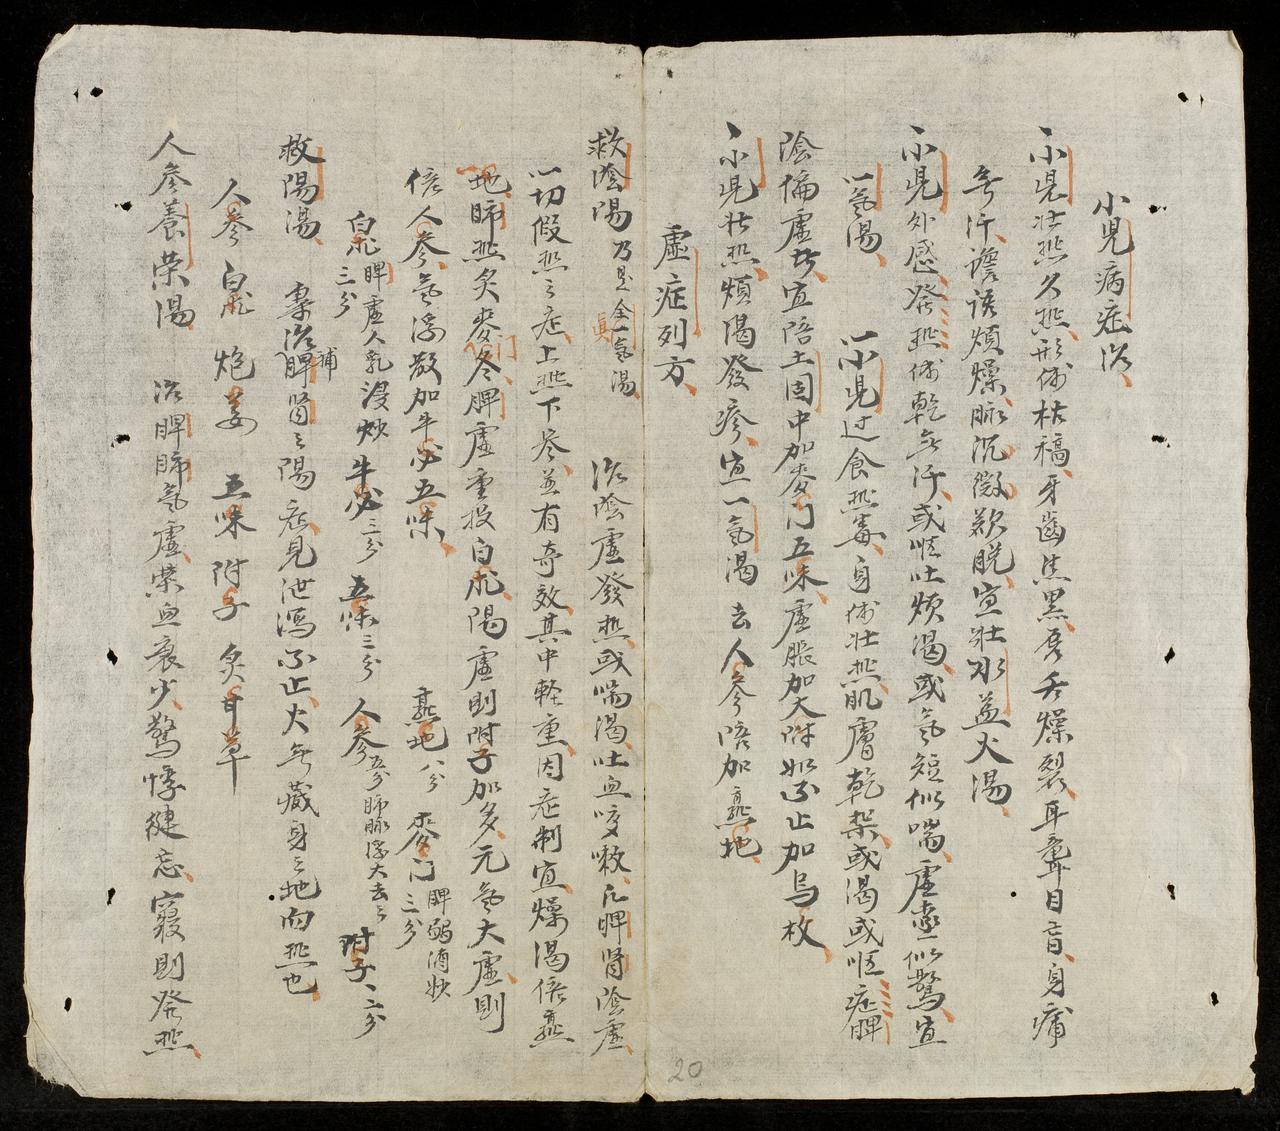 小児病症治
小児壮热久热形体枯稿牙齒焦黒唇舌燥裂耳聋目盲身痛
無汗譫語煩燥脉沉微欲脱宜壮水益火湯
小児外感發热体乾無汗或嘔吐煩渴或氣短似喘虛極似驚宜
一氣湯 一小児过食热毒身体壮热肌膚乾燥或渴或嘔症脾
陰偏虛者宜陪土固中加麥门五味虛脹加大附如不止加烏枚
小児壮热煩渴發疹宜一氣湯去人參陪加熟地
虛症列方
救陰湯乃是全真一氣湯 治陰虛發热或喘渴吐血咳嗽凡脾腎陰虛
一切假热之症上热下寒並有奇效其中軽重因症制宜燥渴倍熟
地肺热炙麥门冬脾虛重投白朮陽虛則附子加多元氣大虛則
倍人參氣浮散加牛必五味 熟地八分 麥门三分脾弱消炒
白朮三分脾虛人乳浸炒 牛必三分 五味三分 人參五分肺脉浮大去之 附子二分
救陽湯 專治補脾腎之陽症見泄瀉不止大無藏身之地而热也
人參 白朮 炮姜 五味 附子 炙甘草
人參養荣湯 治脾肺氣虛榮血衰少驚悸健忘寢則發热
20